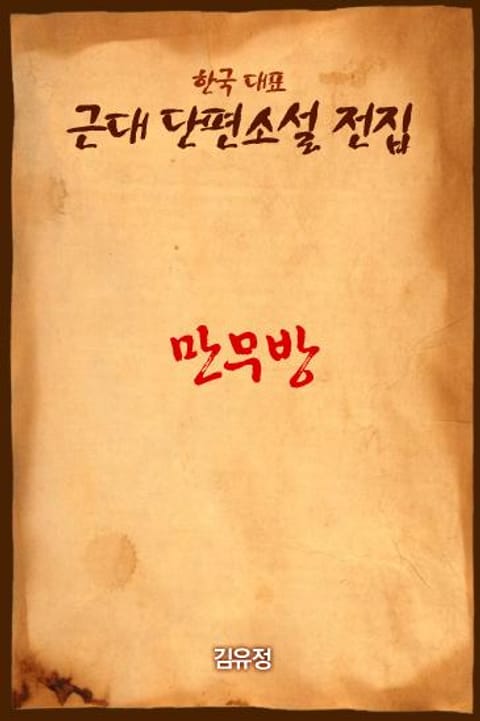 한국 대표
근대 단편소설 전집
만무방
김유정